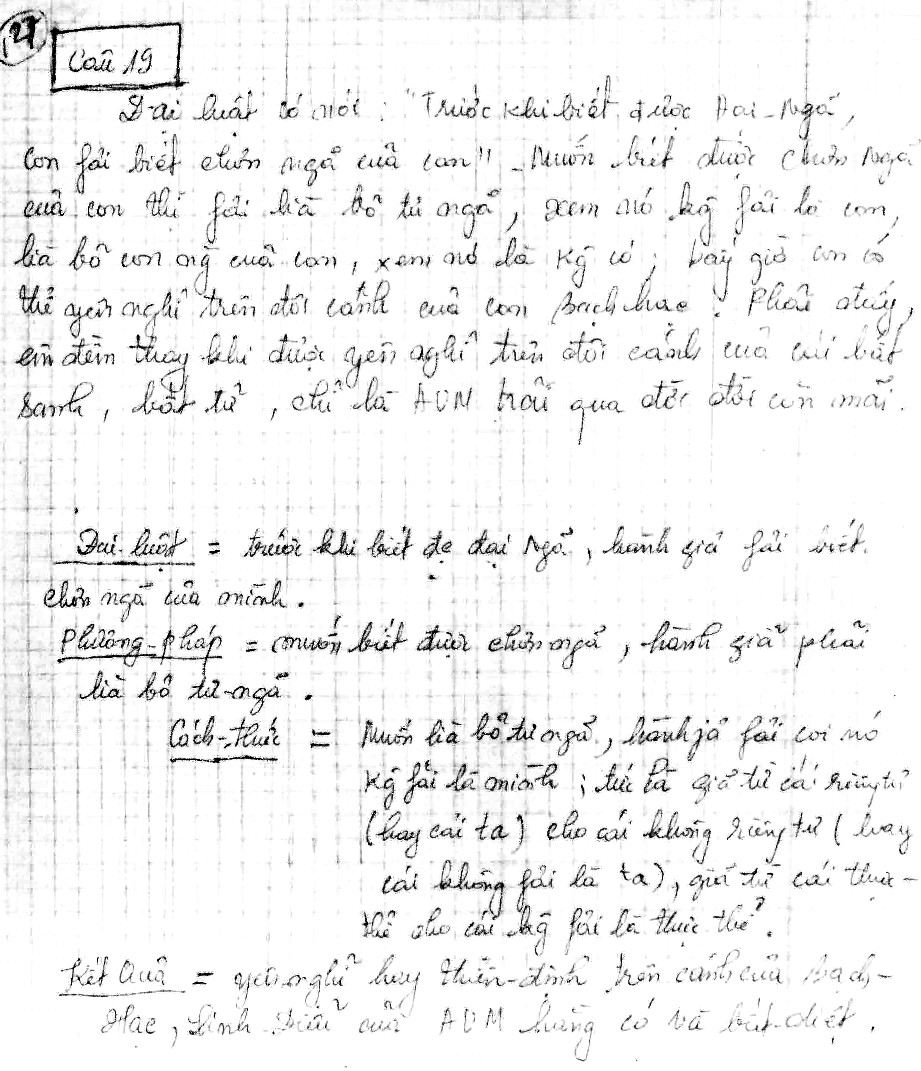 27
Câu 19
Đại luật có nói : "Trước khi biết được Đại-Ngã,
con fải biết chơn ngã của con" - Muốn biết được chơn Ngã
của con thì fải lìa bỏ tư ngã, xem nó kg̃ fải là con,
lìa bỏ con ng̃ của con, xem nó là kg̃ có ; bấy giờ con có
thể yên nghỉ trên đôi cánh của con Bạch hạc .
êm đềm thay khi được yên nghỉ trên đôi cánh của cái bất
sanh, bất tử, chỉ là AUM trãi qua đời đời còn mãi.
Đại-luật = trước khi biết đc đại Ngã, hành giả fải biết
chơn ngã của mình .
Phương-pháp = muốn biết được chơn ngã, hành giã phãi
lìa bỏ tư-ngã .
Cách-thức = Muốn lìa bỏ tư ngã, hành jả fải coi nó
Kg̃ fải là mình ; tức là giã từ cái riêng tư
(hay cái ta) cho cái không riêng tư (hay
cái không fải là ta), giã từ cái thực-
thể cho cái kg̃ fải là thực thể .
Kết Quả = yên nghỉ hay thiền-định trên cánh của Bạch-
Hạc, Linh-Điễu của AUM hằng có và bất-diệt .